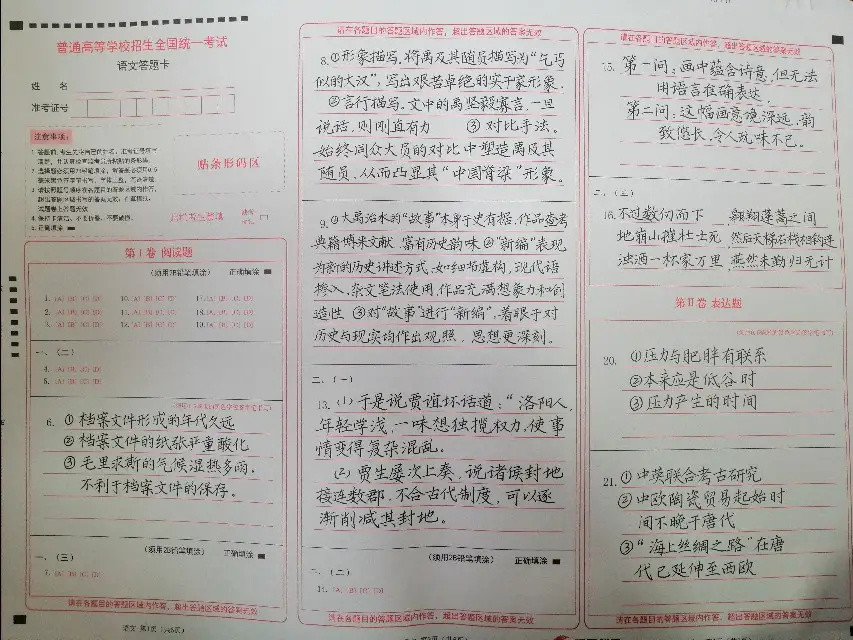 普通高等学校招生全国统一考试
语文答题卡
姓 名
准考证号
注意事项:
贴条形码区
第Ⅰ卷 阅读题
(须用2B铅笔填涂) 正确填涂
1. [A] [B] [C] [D] 10. [A] [B] [C] [D] 17. [A] [B] [C] [D]
2. [A] [B] [C] [D] 11. [A] [B] [C] [D] 18. [A] [B] [C] [D]
3. [A] [B] [C] [D] 12. [A] [B] [C] [D] 19. [A] [B] [C] [D]
一、(二)
4. [A] [B] [C] [D]
5. [A] [B] [C] [D]
6. ①档案文件形成的年代久远
②档案文件的纸张严重酸化
③毛里求斯的气候湿热多雨,
不利于档案文件的保存。
(须用2B铅笔填涂) 正确填涂
一、(三)
7. [A] [B] [C] [D]
请在各题目的答题区域内作答,超出答题区域的答案无效
请在各题目的答题区域内作答,超出答题区域的答案无效
8.①形象描写,将禹及其随员描写为“乞丐
似的大汉”,写出艰苦卓绝的实干家形象.
②言行描写,文中的禹坚毅寡言,一旦
说话,则刚直有力 ③对比手法.
始终同众大员的对比中塑造禹及其
随员,从而凸显其“中国脊梁”形象.
9.①大禹治水的“故事”本身于史有据,作品查考
典籍博采文献,富有历史韵味②“新编”表现
为新的历史讲述方式,如细节虚构,现代语
掺入,杂文笔法使用,作品充满想象力和创
造性 ③对“故事”进行“新编”,着眼于对
历史与现实均作出观照,思想更深刻.
二、(一)
13.(1)于是说贾谊坏话道:“洛阳人,
年轻学浅,一味想独揽权力,使事
情变得复杂混乱。
(2)贾生屡次上奏,说诸侯封地
接连数郡,不合古代制度,可以逐
渐削减其封地。
(须用2B铅笔填涂) 正确填涂
二、(二)
14. [A] [B] [C] [D]
请在各题目的答题区域内作答,超出答题区域的答案无效
请在各题目的答题区域内作答,超出答题区域的答案无效
15. 第一问:画中蕴含诗意,但无法
用语言准确表达.
第二问:这幅画意境深远,韵
致悠长,令人玩味不已。
二、(三)
16.不过数仞而下 翱翔蓬蒿之间
地崩山摧壮士死 然后天梯石栈相钩连
浊酒一杯家万里 燕然未勒归无计
第Ⅱ卷 表达题
20. ①压力与肥胖有联系
②本来应是低谷时
③压力产生的时间
21.①中英联合考古研究
②中欧陶瓷贸易起始时
间不晚于唐代
③“海上丝绸之路”在唐
代已延伸至西欧
请在各题目的答题区域内作答,超出答题区域的答案无效